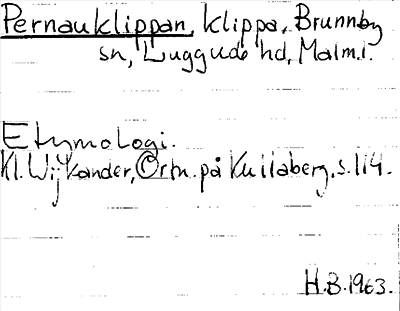 Pernauklippan, klippa. Brunnby
sn, Luggude hd, Malm.l.
Etymologi.
Kl. Wijkander, Ortn. på Kullaberg, s. 114.
H.B. 1963.